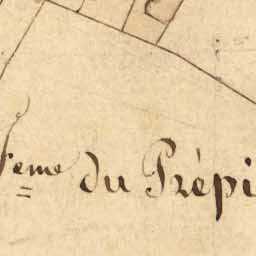 eme du Prépi